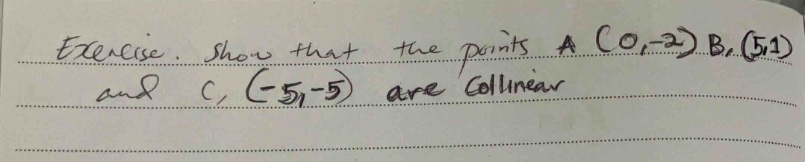 Exercise. Show that the points A (0,-2) B, (5,1)
and C, (-5,-5) are Collinear